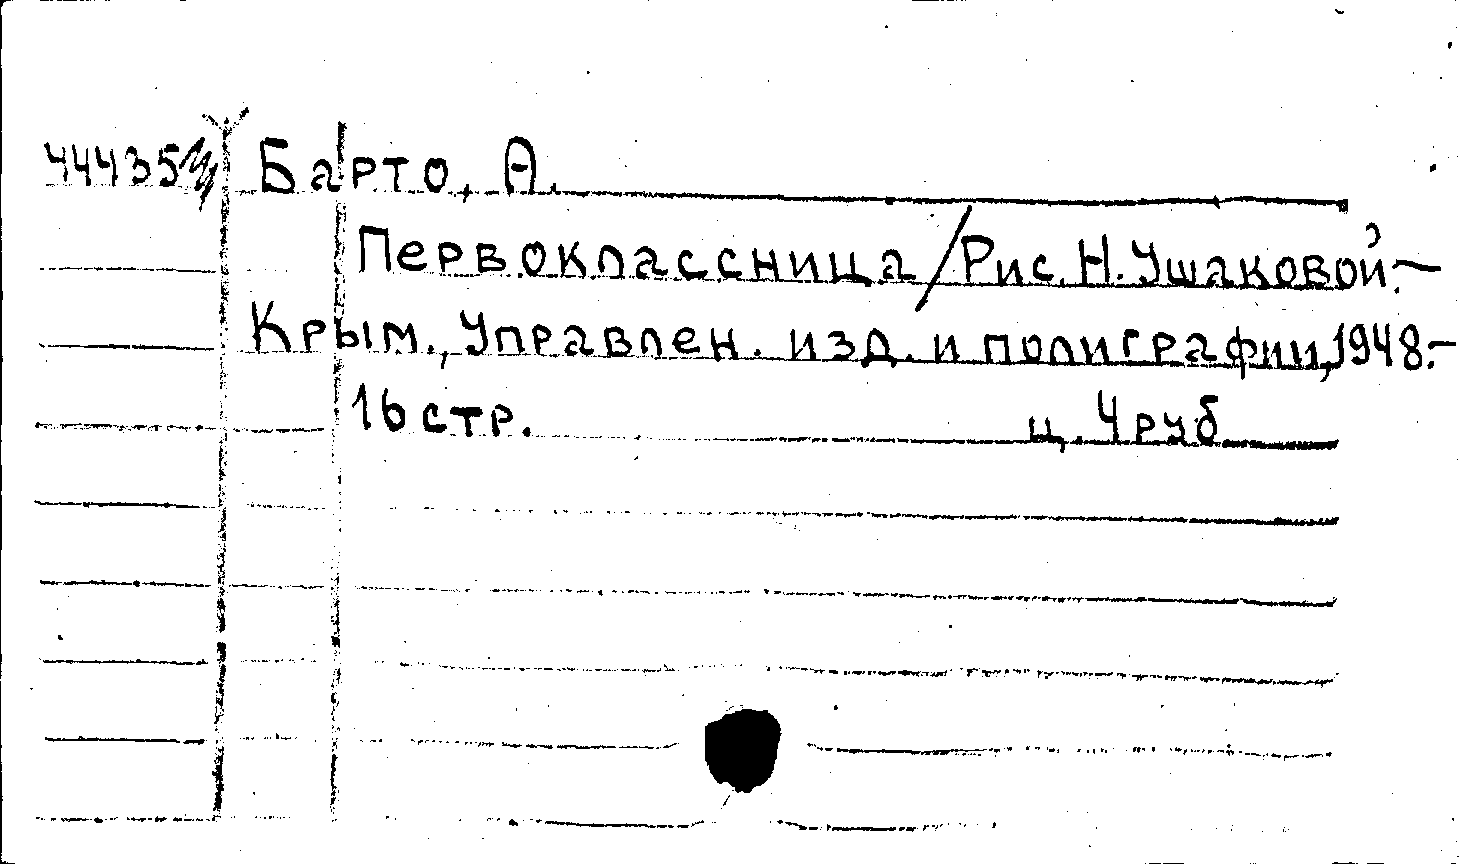 44435 Барто, А.
Первоклассница/Рис. Н. Ушаковой.-
Крым., Управлен. изд. и полиграфии, 1948.-
16 стр. ц. 4 руб